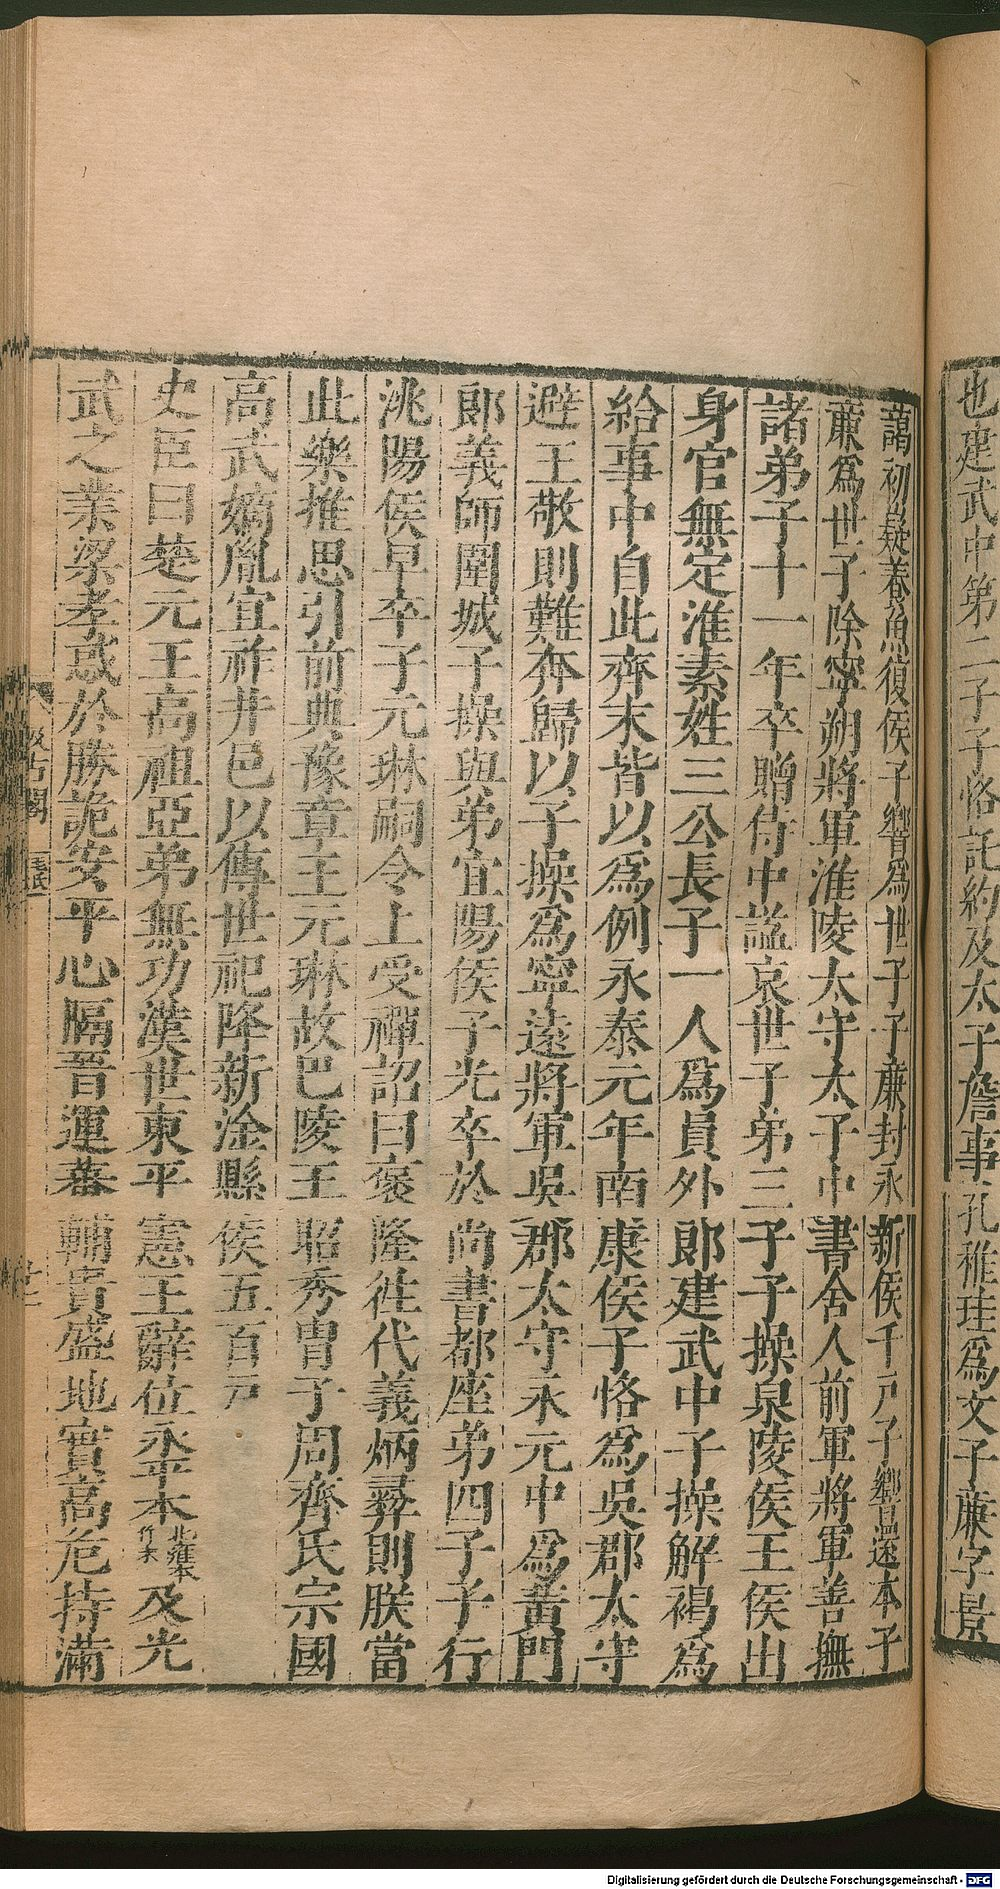 也建武中第二子子恪託約及太子詹事孔稚珪爲文子廉字景
藹初嶷養魚復侯子響爲世子子廉封永新侯千戶子響還本子
廉爲世子除寧朔將軍淮陵太守太子中書舍人前軍將軍善撫
諸弟子十一年卒贈侍中諡哀世子弟三子子操泉陵侯王侯出
身官無定淮素姓三公長子一人爲員外郞建武中子操解褐爲
給事中自此齊末皆以爲例永泰元年南康侯子恪爲吳郡太守
避王敬則難奔歸以子操爲寧遠將軍吳郡太守永元中爲黃門
郞義師圍城子操與弟宜陽侯子光卒於尚書都座弟四子子行
洮陽侯早卒子元琳嗣今上受禪詔曰褒隆往代義炳彞則朕當
此樂推思引前典豫章王元琳故巴陵王昭秀胄子周齊氏宗國
高武嫡胤宜祚井邑以傳世祀降新淦縣侯五百戶
史臣曰楚元王高祖亞弟無功漢世東平憲王辭位永平本北雍本作末及光
武之業梁孝惑於勝詭安平心隔晉運蕃輔貴盛地實高危持滿
汲古閣
毛氏
Digitalisierung gefördert durch die Deutsche Forschungsgemeinschaft - DFG